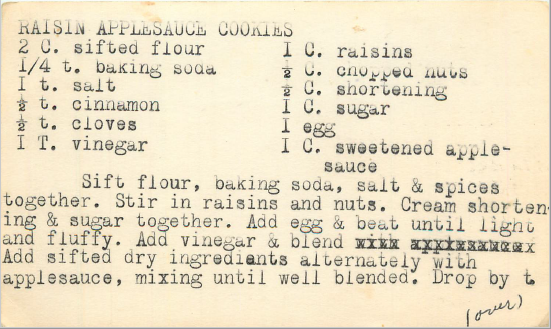 RAISIN APPLESAUCE COOKIES
2 C. sifted flour
1/4 t. baking soda
1 t. salt
½ t. cinnamon
½ t. cloves
1 T. vinegar
1 C. raisins
½ C. chopped nuts
½ C. shortening
1 C. sugar
1 egg
1 C. sweetened apple-
sauce
Sift flour, baking soda, salt & spices
together. Stir in raisins and nuts. Cream shorten-
ing & sugar together. Add egg & beat until light
and fluffy. Add vinegar & blend
Add sifted dry ingredients alternately with
applesauce, mixing until well blended. Drop by t.
(over)